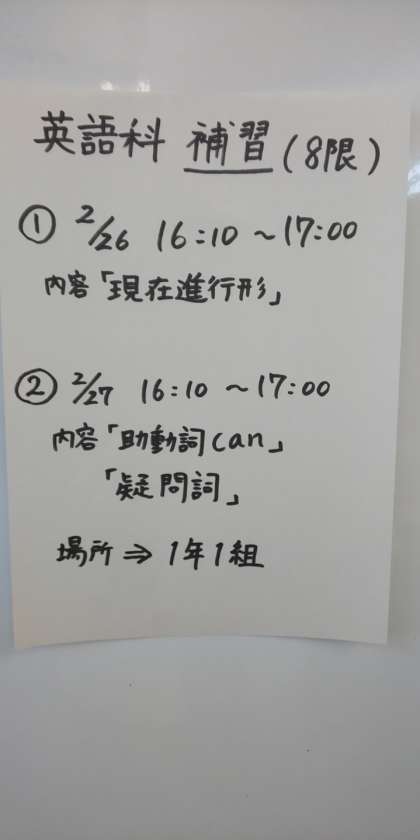 英語科 補習(8限)
① 2/26 16:10 ~17:00
内容「現在進行形」
② 2/27 16:10 ~17:00
内容「助動詞can」
「疑問詞」
場所⇒1年1組